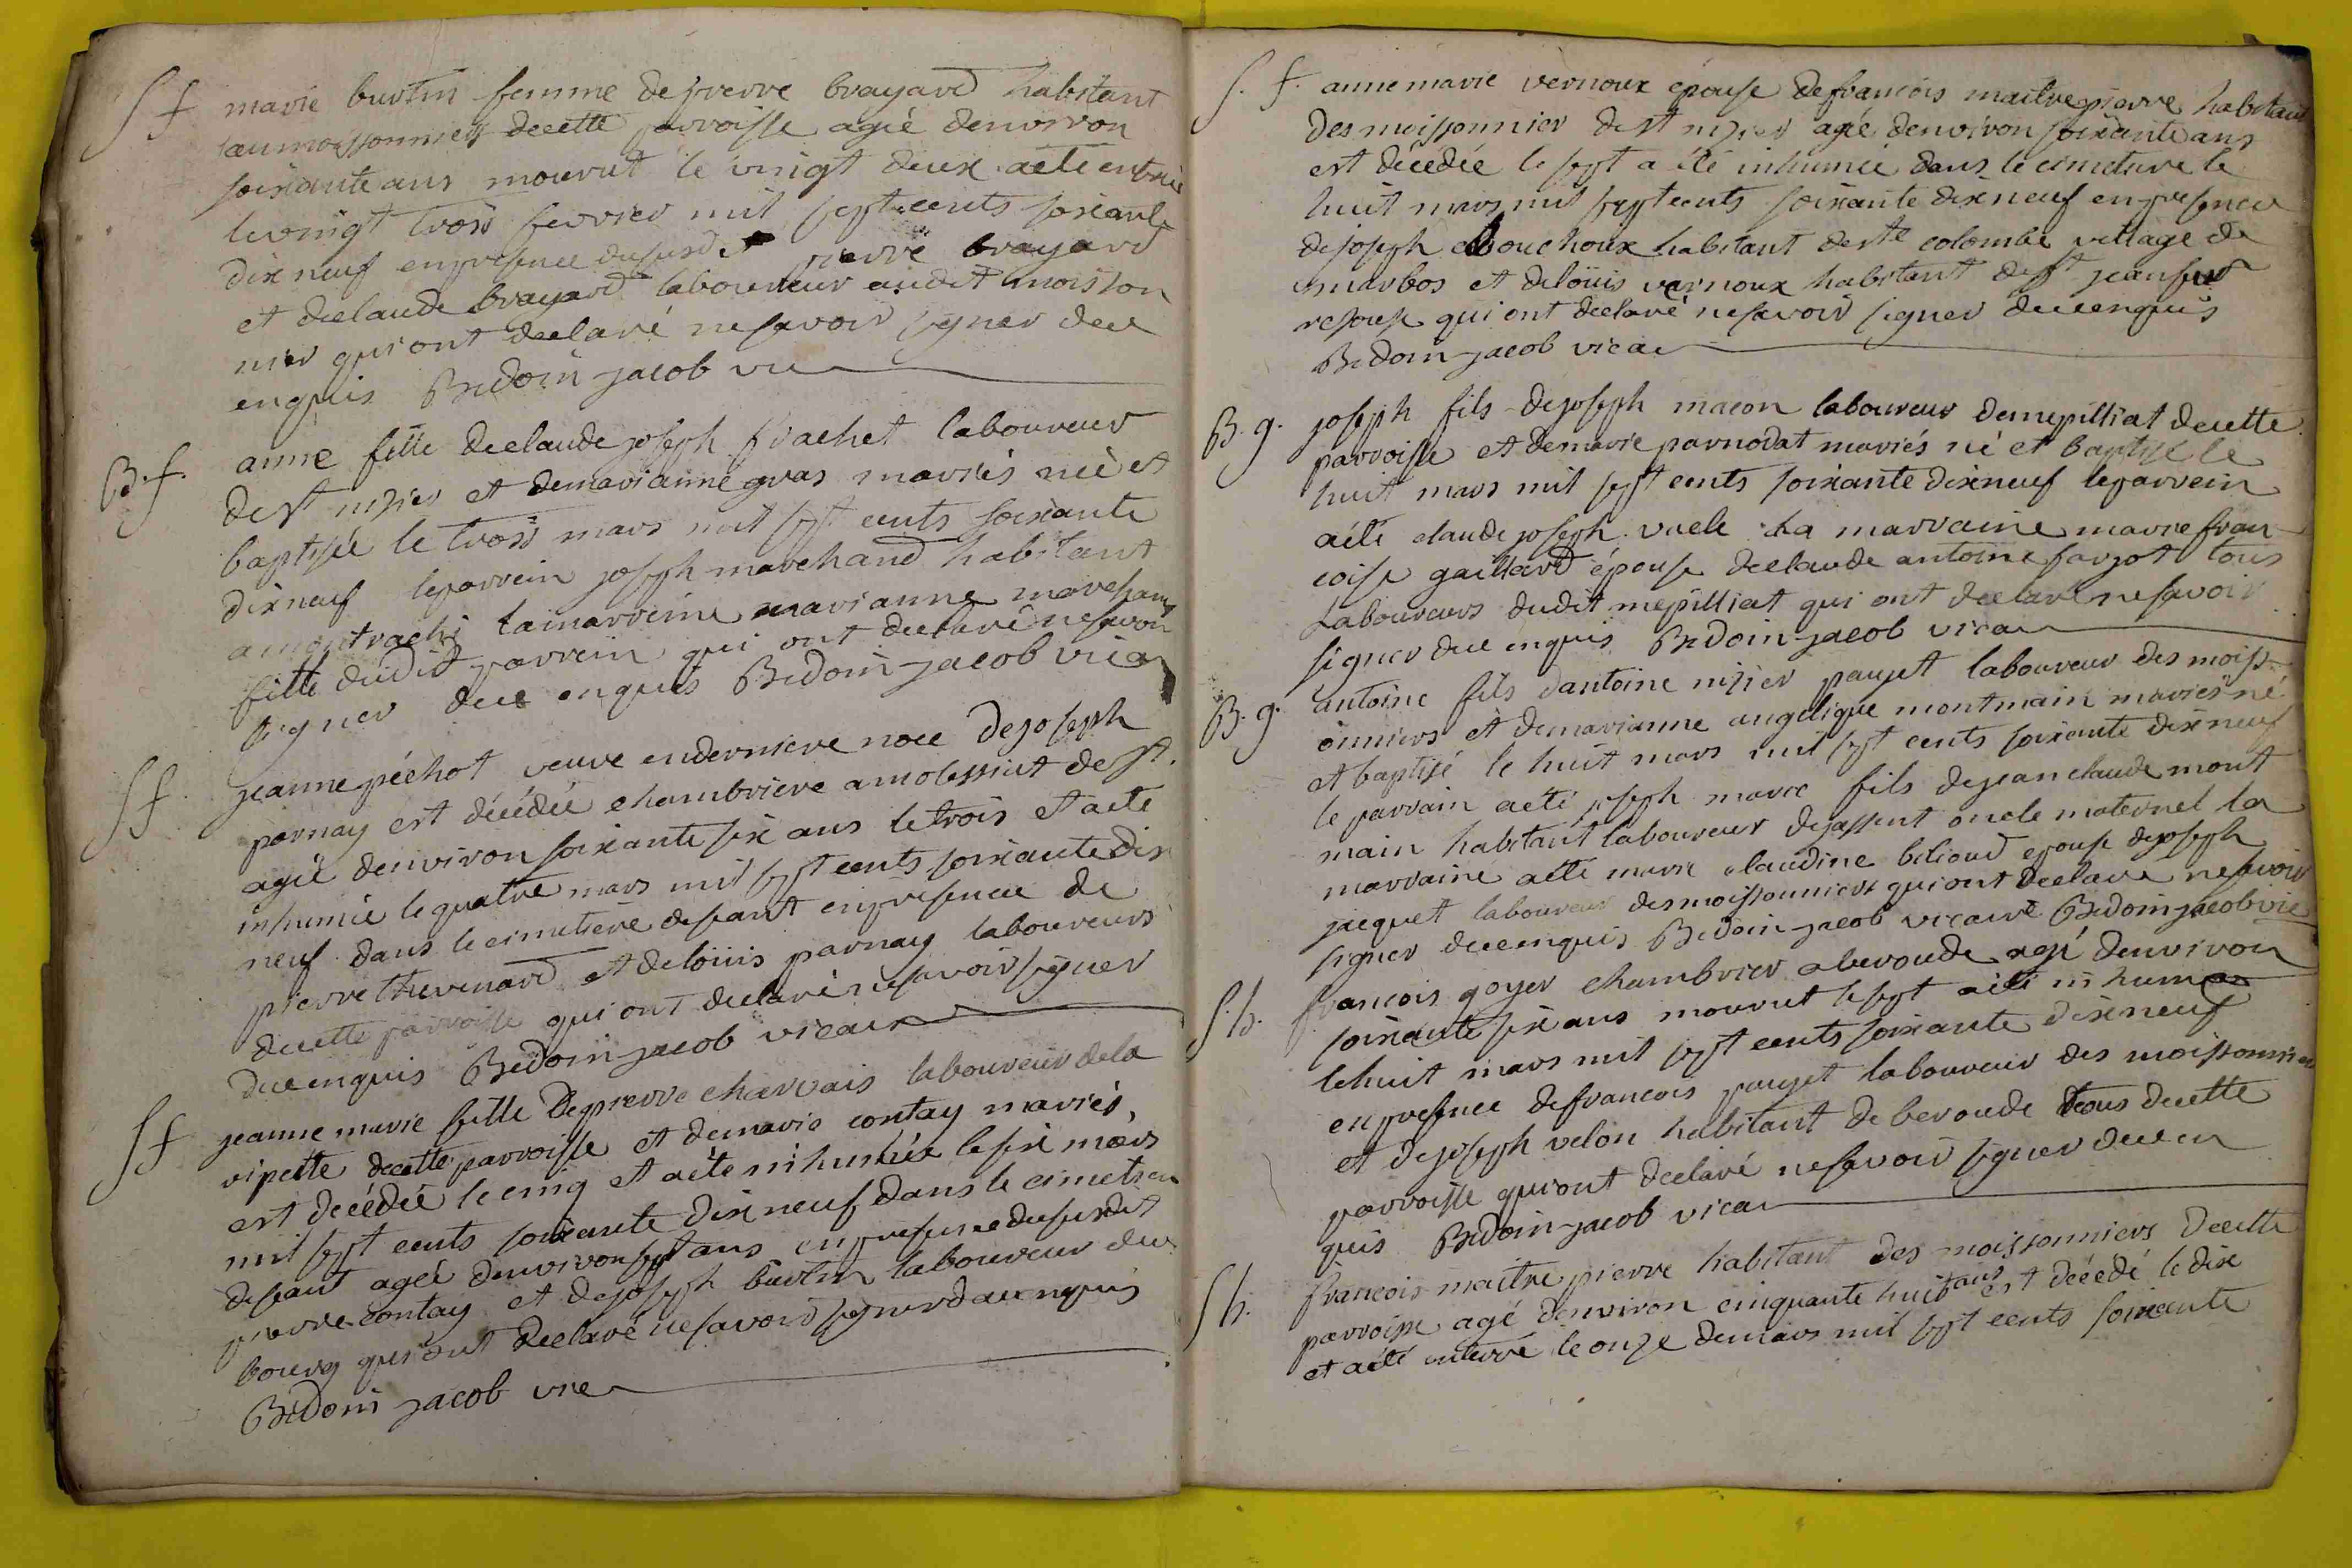 S f marie burtin femme de pierre brayard habitant
aumoissonnier decette parroisse agée denviron
soixante ans mourut le vingt deux aeté enterrée
levingt trois fevrier mil sept cents soixante
dix neuf enpresence dususdit pierre brayard
et declaude brayard laboureur audit moisson
nier qui ont declaré nesavoir signer dece
enquis Bedoin jacob vic
B. f. anne fille declaude joseph frachet laboureur
de st nizier et demarianne gras mariés née et
baptisée le trois mars mil sept cents soixante
dixneuf leparrein joseph marchand habitant
a montrachi lamarreine marianne marchand
fille dudit parrein qui ont declaré nesavoir
signer dece enquis Bedoin jacob vicar
S f. jeanne péchot veuve enderniere noce dejoseph
parnay est décédée chambriere a de st.
agée denviron soixante six ans letrois et aété
inhumée lequatre mars mil sept cents soixante dix
neuf dans lecimetiere desant enpresence de
pierre thevenard et delöuis parnay laboureurs
decette parroisse qui ont declaré nesavoir signer
dece enquis Bedoin jacob vicair
S f jeanne marie fille depierre charvais laboureur dela
vipette decette parroisse et demarie contay mariés,
est decédée le cinq et aété inhumée lesix mars
mil sept cents soixante dix neuf dans le cimetiere
desant agée denviron sept ans enpresence dususdit
pierre contay et dejoseph burtin laboureur du
bourg qui ont declaré nesavoir signer dece enquis
Bedoin jacob vic
S. f. anne marie vernoux épouse defrancois maitrepierre habitant
des moissonnier dest nizier agée denviron soixante ans
est décédée le sept a été inhumée dans le cimetiere le
huit mars mil sept cents soixante dixneuf enpresence
dejoseph bouchoux habitant de ste colombe village de
marbos et delöuis vernoux habitant dest jeansur
resouse qui ont declaré nesavoir signer dece enquis
Bedoin jacob vicar
B. g. joseph fils dejoseph macon laboureur demepilliat decette
parroisse et demarie parnodat mariés né et baptisé le
huit mars mil sept cents soixante dixneuf leparrein
aété claude joseph vuele La marraine marie fran
coise gaillard épouse declaude antoine farjot tous
Laboureurs dudit mepilliat qui ont declaré nesavoir
signer dece enquis Bedoin jacob vicar
B. g. antoine fils dantoine nizier pauget laboureur des moiss
onniers et demarianne angelique montmain mariés né
et baptisé le huit mars mil sept cents soixante dixneuf
le parrain aété joseph marie fils dejeanclaude mont
main habitant laboureur dejassent oncle maternel la
marraine aété marie claudine beliond epouse dejoseph
jacquet laboureur desmoissonniers qui ont declaré nesavoir
signer dece enquis Bedoin jacob vicaire Bedoin jacob vic
S. h. francois goyer chambrier aberoude agé denviron
soixante six ans mourut lesept aété inhumé
lehuit mars mil sept cents soixante dixneuf
enpresence defrancois pauget laboureur des moissonniers
et dejoseph velon habitant de beroude tous decette
parroisse qui ont declaré nesavoir signer dece en
quis Bedoin jacob vicar
S h. francois maitre pierre habitant des moissonniers decette
parroisse agé denviron cinquante huit ans est décédé le dix
et aété enterré le onze demars mil sept cents soixante